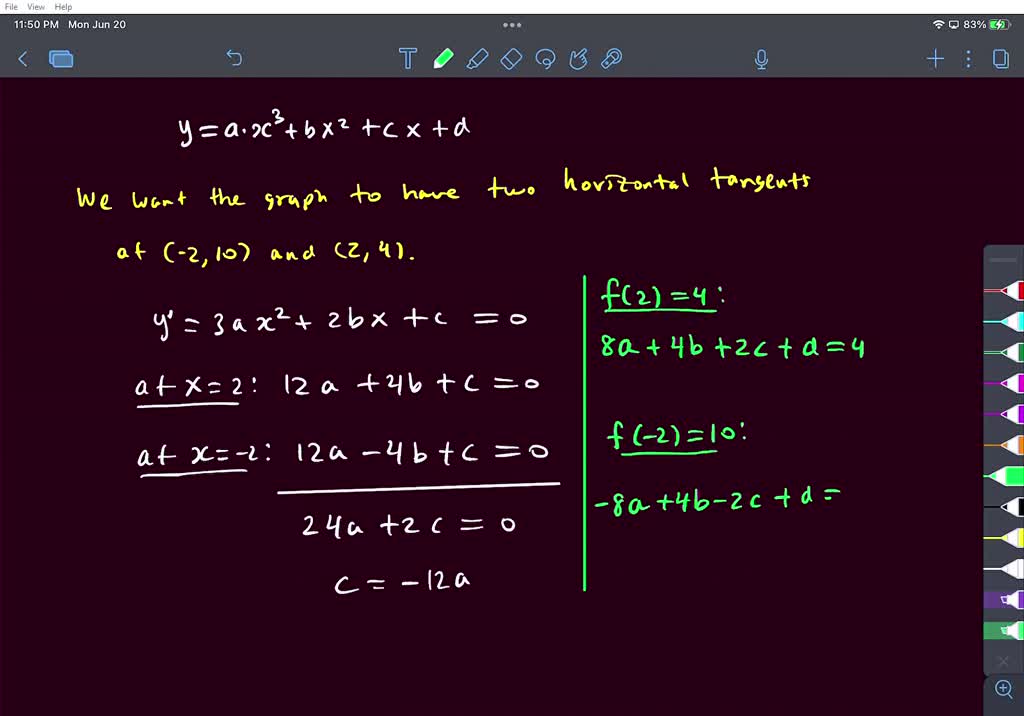 File View Help
11:50 PM Mon Jun 20
83%
y = a·x³ + bx² + cx + d
We want the graph to have two horizontal tangents
at (-2, 10) and (2, 4).
y' = 3ax² + 2bx + c = 0
at x = 2: 12a + 4b + c = 0
at x = -2: 12a - 4b + c = 0
24a + 2c = 0
c = -12a
f(2) = 4:
8a + 4b + 2c + d = 4
f(-2) = 10:
-8a + 4b - 2c + d =